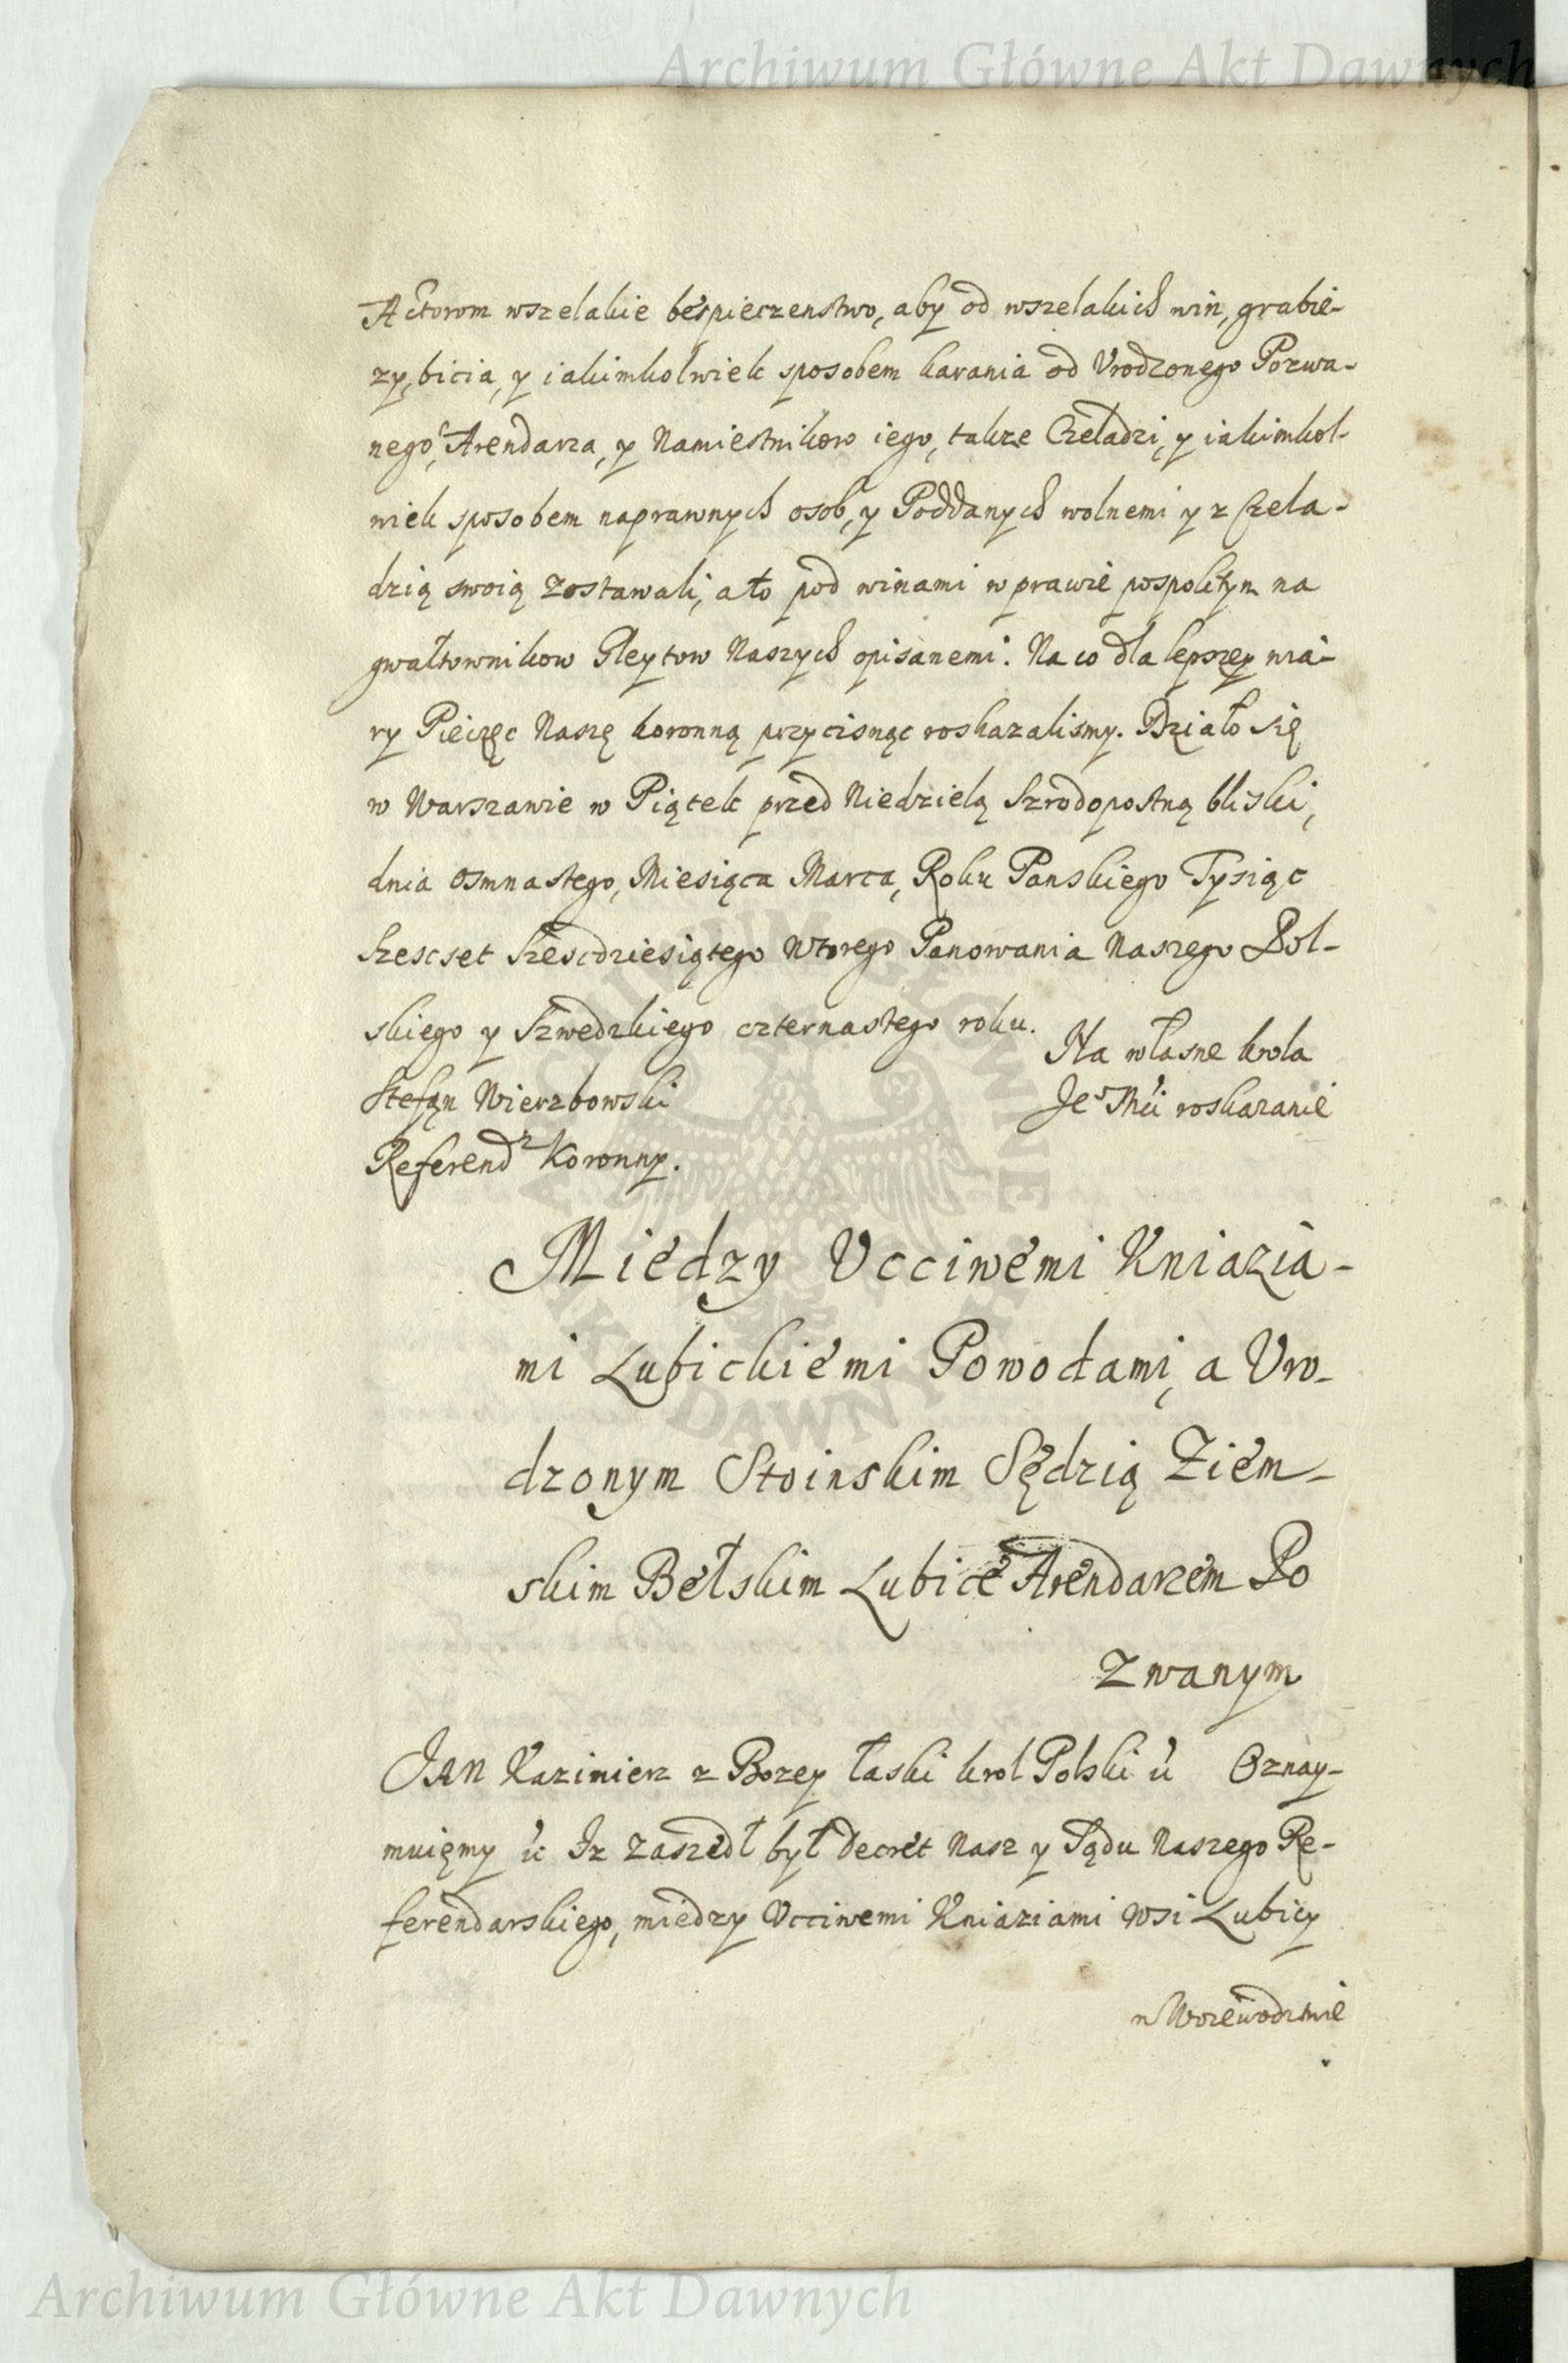 Archiwum Główne Akt Dawnych
Actorom wszelakie bespieczenstwo, aby od wszelakich win, grabie-
zy, bicia, y iakimkolwiek sposobem karania od Vrodzonego Pozwa-
nego, Arendarza, y Namiestnikow iego, takze Czeladzi, y iakimkol-
wiek sposobem naprawnych osob, y Poddanych wolnemi y z Czela-
dzią swoią zostawali, a to pod winami w prawie pospolitym na
gwałtownikow Gleytow Naszych opisanemi. Na co dla lepszey wia-
ry Pieczęc Naszę koronną przycisnąc roskazalismy. Działo się
w Warszawie w Piątek przed Niedzielą Szrodopostną bliski,
dnia osmnastego, Miesiąca Marca, Roku Panskiego Tysiąc
Szescset Szescdziesiątego Wtorego Panowania Naszego Pol-
skiego y Szwedzkiego czternastego roku.
Na własne krola
Stefan Wierzbowski
Je° Mći roskazanie
Referendz Koronny.
Miedzy Vcciwemi Kniazia-
mi Lubickiemi Powodami, a Vro-
dzonym Stoinskim Sędzią Ziem-
skim Bełskim Lubice Arendarzem Po
zwanym
JAN Kazimierz z Bozey łaski krol Polski ic Oznay-
muięmy ic Iz zaszedł był decret Nasz y Sądu Naszego Re-
ferendarskiego, miedzy Vcciwemi Kniaziami wsi Lubicy
w Woiewodztwie
ARCHIWUM GŁÓWNE AKT DAWNYCH
Archiwum Główne Akt Dawnych